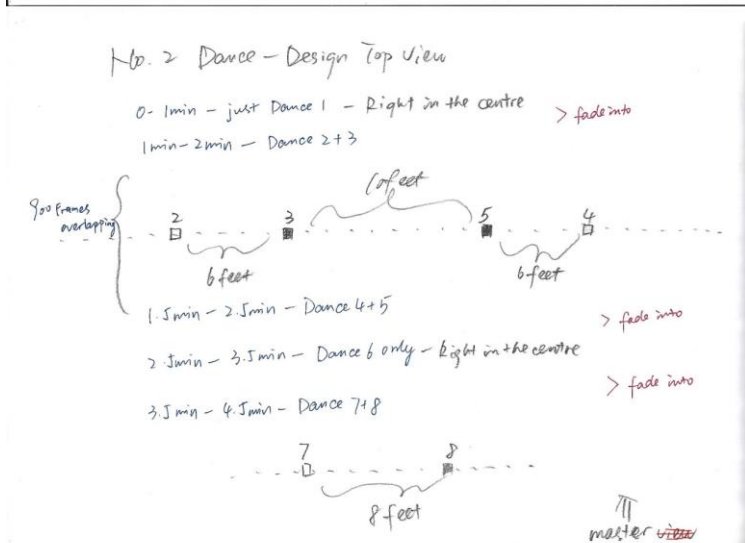 No. 2 Dance – Design Top View
0-1min – just Dance 1 – Right in the centre
> fade into
1min-2min – Dance 2+3
10feet
900 frames
overlapping
2 3 5 4
6 feet 6 feet
1.5min – 2.5min – Dance 4+5
> fade into
2.5min – 3.5min – Dance 6 only – Right in the centre
> fade into
3.5min – 4.5min – Dance 7+8
7 8
8 feet
master view